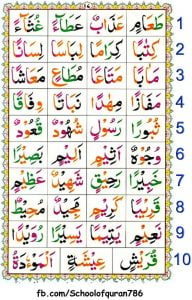 طَعَامٍ عَذَابٌ عَطَاءً غُثَاءً 1
كِتٰبًا كِرَامًا لِبَاسًا لِسَانًا 2
مَاٰبًا مَتَاعًا مُطَاعٍ مَعَاشًا 3
مَفَازًا مِهٰدًا نَبَاتًا وِفَاقًا 4
ثُبُورًا رَسُولٍ شُهُودٌ قُعُودٌ 5
وُجُوهٌ اَثِيْمٍ اَلِيْمٍ بَصِيْرًا 6
خَبِيْرًا رَحِيْقٍ شَهِيْدٌ عَظِيْمٍ 7
قَرِيْبًا كَرِيْمٍ مَجِيْدٌ مُحِيْطٌ 8
نَعِيْمٍ يَتِيْمًا يَسِيْرًا رُوَيْدًا 9
قُرَيْشٍ عِيْشَةٍ اَلْمَوْءٗدَةُ 10
fb.com/Schoolofquran786